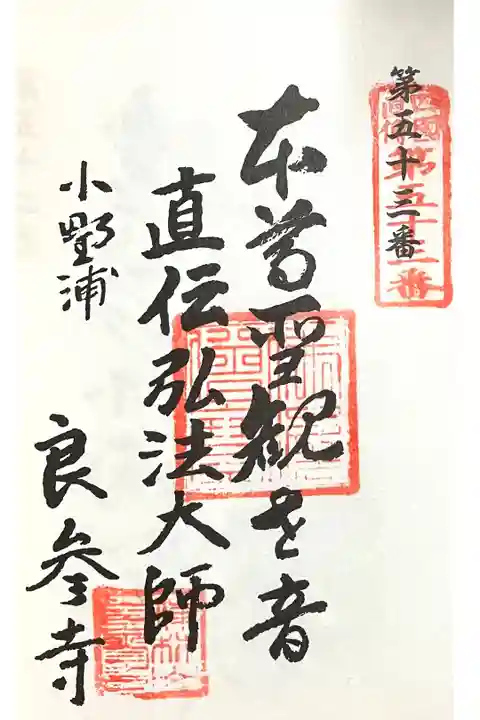 第五十三番
第五十三番
本尊聖観世音
直伝弘法大師
小野浦
良参寺